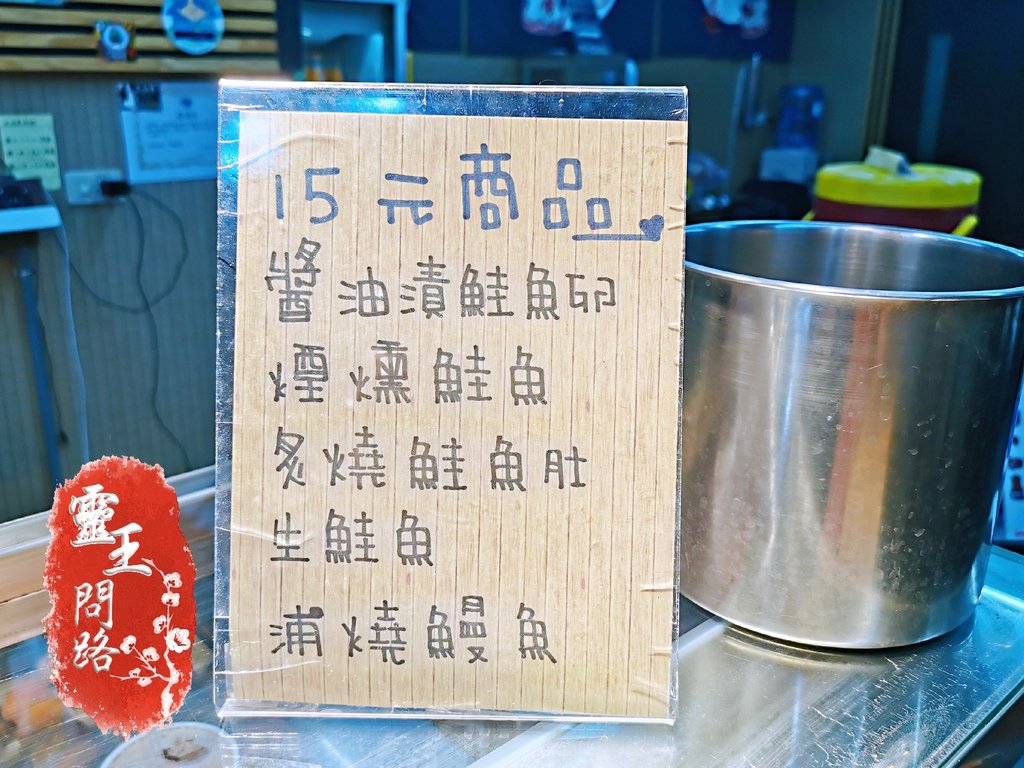 15元商品
醬油漬鮭魚卵
煙燻鮭魚
炙燒鮭魚肚
生鮭魚
浦燒鰻魚
靈王問路